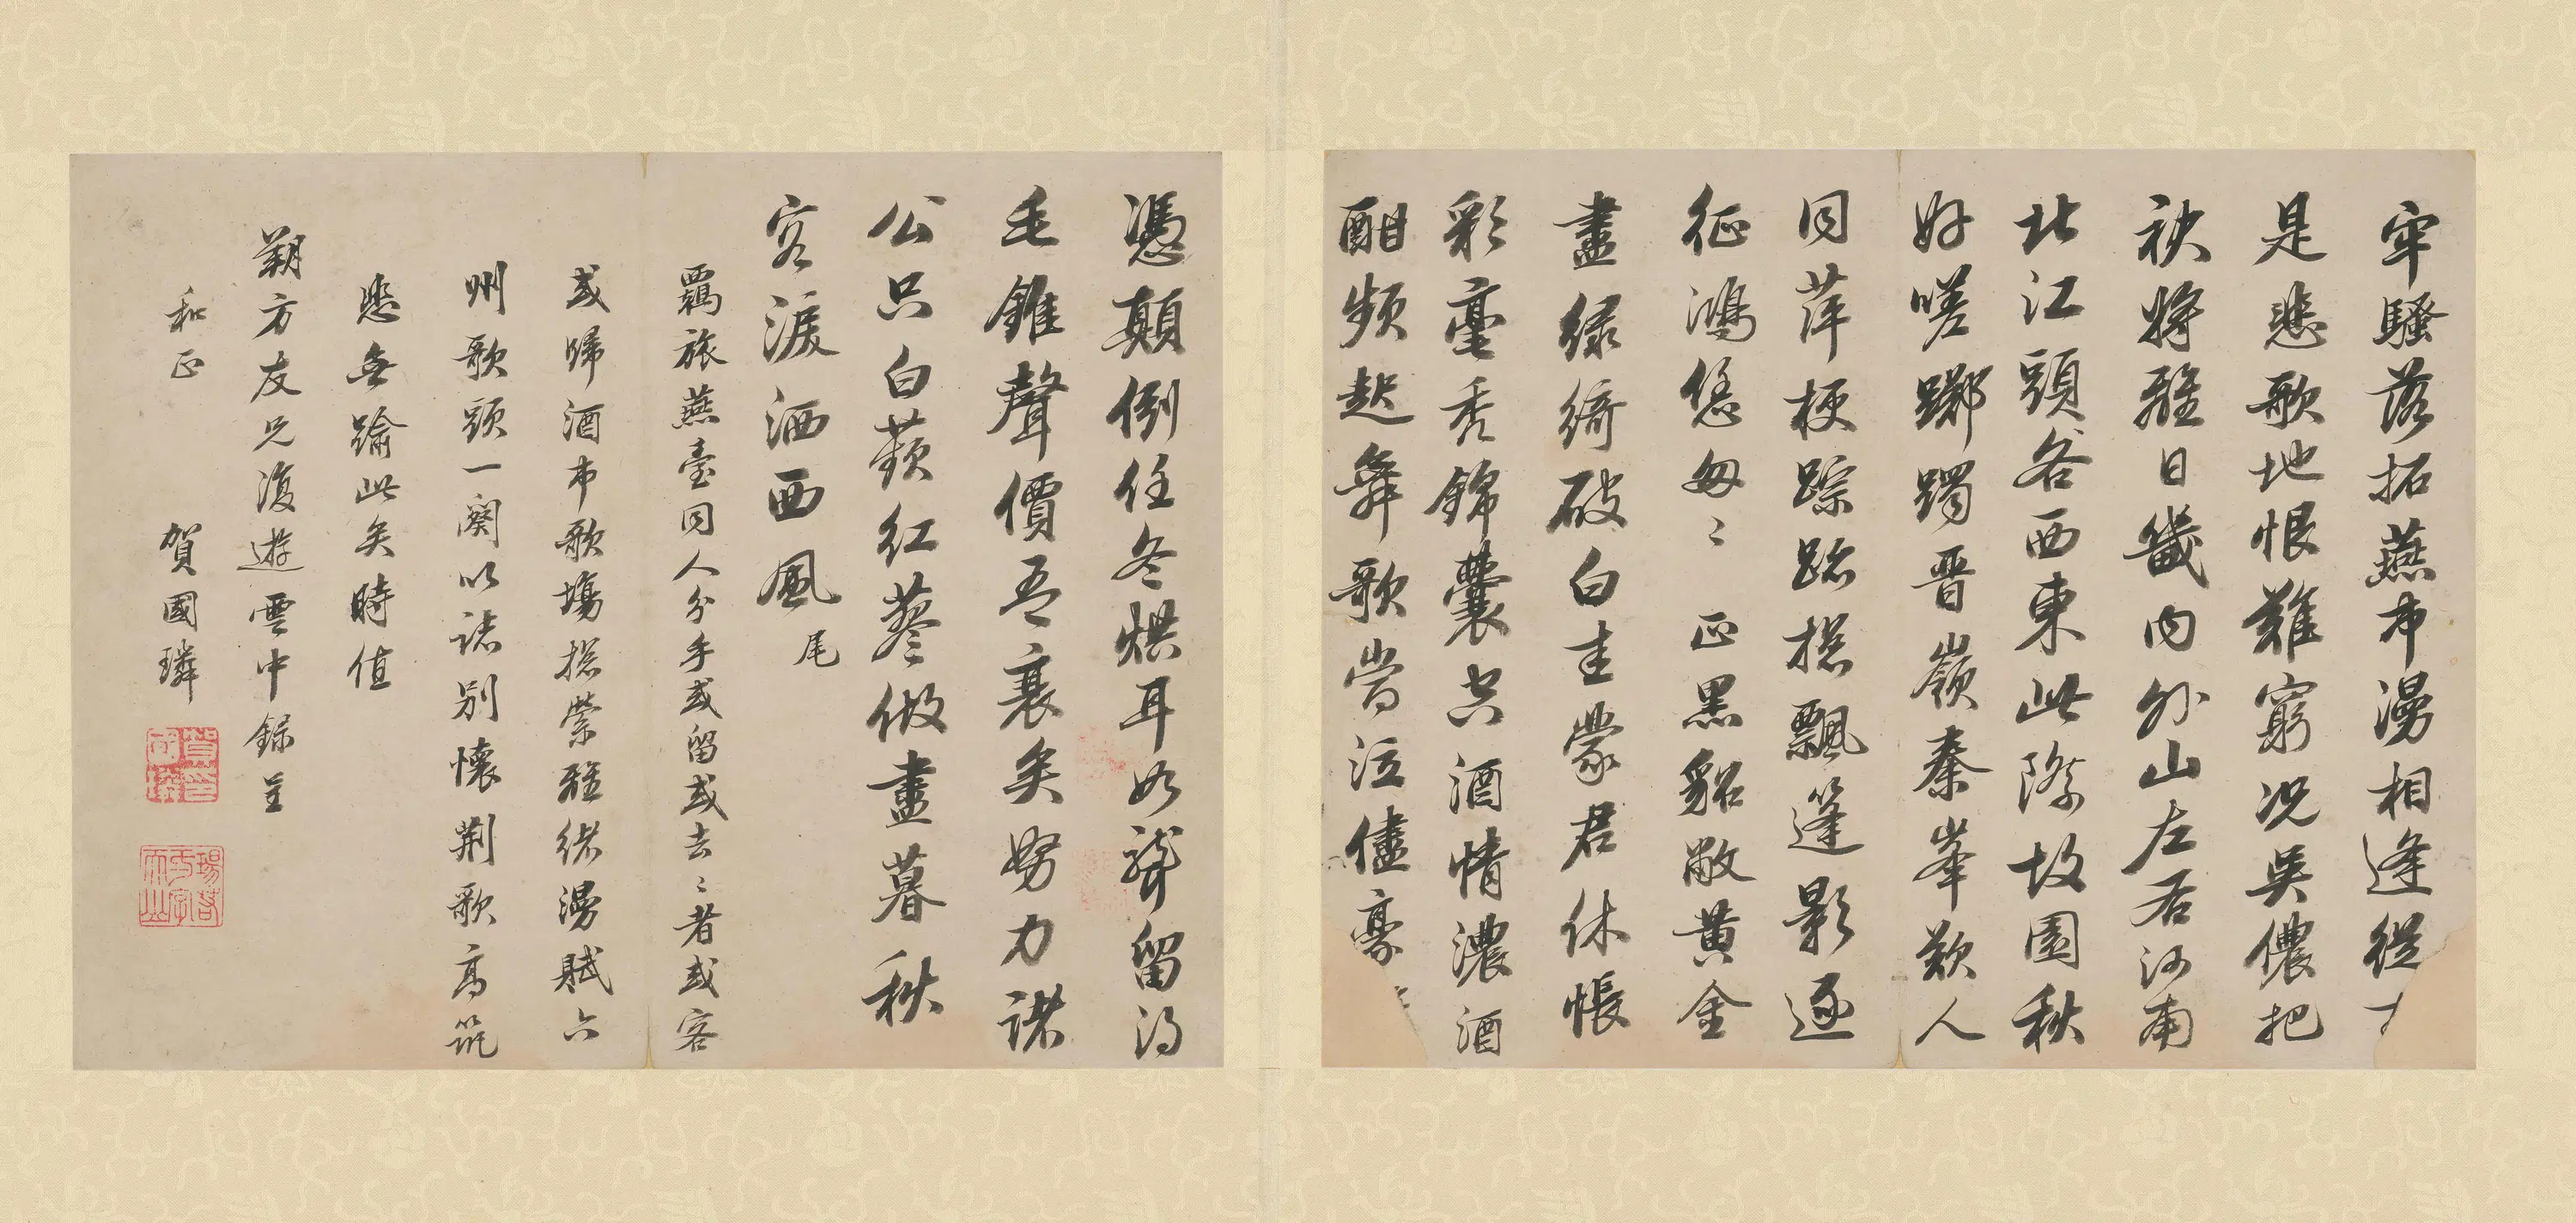 牢騷落拓燕市漫相逢從
是悲歌地恨難窮况吳儂把
袂將離日畿內外山左右河南
北江頭各西東此際故園秋
好嗟躑躅晉嶺秦峯歎人
同萍梗踪跡摠飄蓬影逐
征鴻恁匆〻正黑貂敝黄金
盡綠綺破白圭蒙君休悵
彩毫秃錦囊空酒情濃酒
酣頻起舞歌當泣儘豪
憑顛倒任冬烘耳如聾留得
毛錐聲價吾衰矣努力諸
公只白蘋紅蓼做盡暮秋
容淚洒西風 尾
羈旅燕臺同人分手或留或去〻者或客
或歸酒市歌塲摠縈離緒漫賦六
州歌頭一闋以誌別懷荆歌高筑
悲無踰此矣時值
朔方友兄復遊雲中錄呈
和正
賀國璘